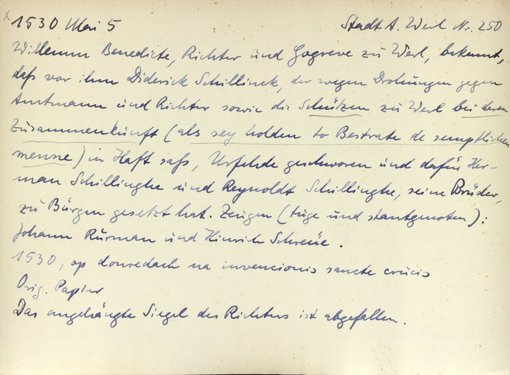 1530 Mai 5 Stadt A. Werl Nr. 250
Willemm Benedicte, Richter und Gogreve zu Werl, bekennt,
daß vor ihm Diderick Schillinck, der wegen Drohungen gegen
Amtmann und Richter sowie die Schützen zu Werl bei deren
Zusammenkunft (als sey holden to Bestrate de semptlichen
menne) in Haft saß, Urfehde geschworen und dafür Her-
man Schillinghe und Reynoldt Schillinghe, seine Brüder,
zu Bürgen gesetzt hat. Zeugen (tüge und stantgenoten):
Johann Rürman und Hinrich Schreue.
1530, op donredach na invencionis sancte crucis
Orig. Papier
Das angehängte Siegel des Richters ist abgefallen.